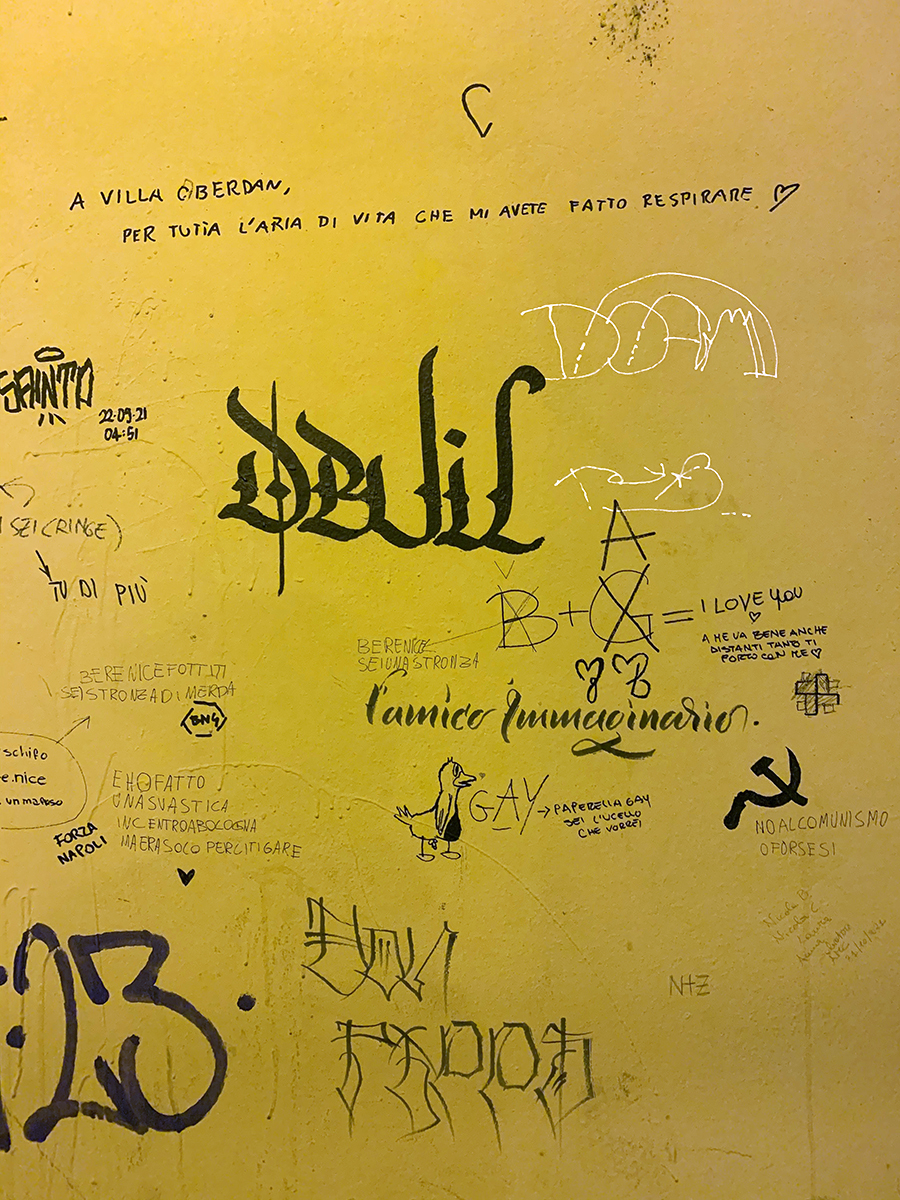 A VILLA OBERDAN,
PER TUTTA L'ARIA DI VITA CHE MI AVETE FATTO RESPIRARE
SANTO
22·09·21
04:51
DEVIL
SEI CRINGE)
TU DI PIÙ
A
B + G = I LOVE YOU
A ME VA BENE ANCHE
DISTANTI TANTO TI
PORTO CON ME
BERENICE
SEI UNA STRONZA
BERENICE FOTTITI
SEI STRONZA DI MERDA
BNG
l'amico Immaginario.
schifo
e.nice
un mafioso
FORZA
NAPOLI
E HO FATTO
UNA SVASTICA
IN CENTRO A BOLOGNA
MA ERA SOLO PER LITIGARE
GAY
PAPERELLA GAY
SEI L'UCELLO
CHE VORREI
NO AL COMUNISMO
O FORSE SI
Nicola B
Nicola C
Laura
N+Z
23